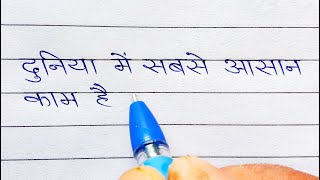 दुनिया में सबसे आसान
काम है